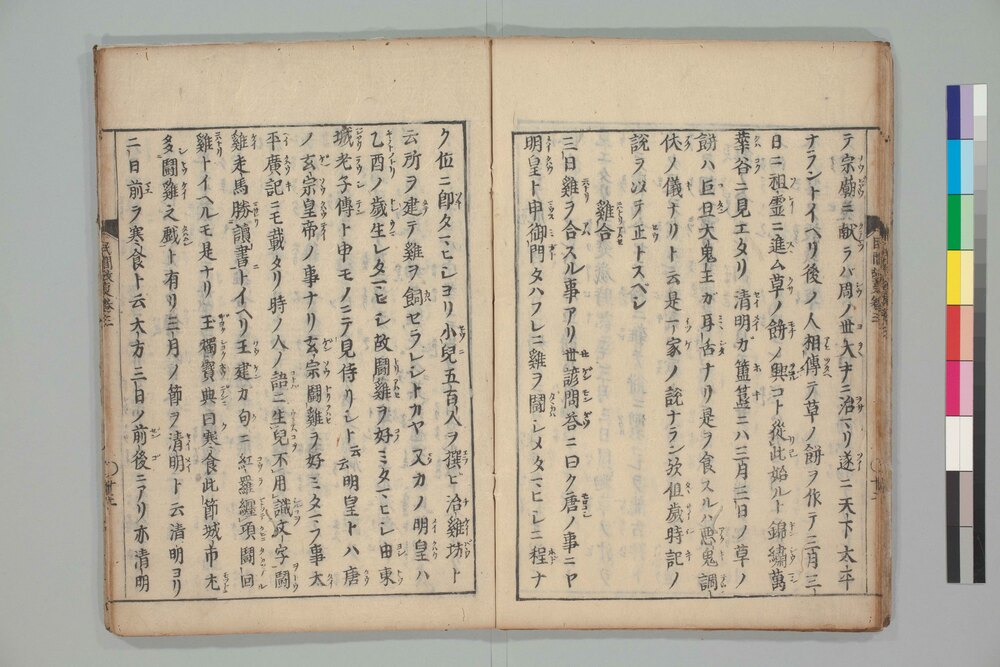 テ宗廟ニ献ラバ周ノ世大キニ治マリ遂ニ天下太平
ナラントイヘリ後ノ人相傳テ草ノ餅ヲ作テ三月三
日ニ祖霊ニ進ム草ノ餅ノ興コト從此始ルト錦繡萬
華谷ニ見エタリ清明カ簠簋ニハ三月三日ノ草ノ
餅ハ巨旦大鬼王カ耳舌ナリ是ヲ食スルハ悪鬼調
伏ノ儀ナリト云是一家ノ説ナラン歟但歳時記ノ
説ヲ以テ正トスベシ
雞合
三日雞ヲ合スル事アリ世諺問答ニ曰ク唐ノ事ニヤ
明皇ト申御門タハフレニ雞ヲ闘シメタマヒシニ程ナ
ク位ニ即タマヒシヨリ小兒五百人ヲ撰ヒ治雞坊ト
云所ヲ建テ雞ヲ飼セラレシトカヤ又カノ明皇ハ
乙酉ノ歳生レタマヒシ故闘雞ヲ好ミタマヒシ由東
城老子傳ト申モノニテ見侍リシト云云明皇トハ唐
ノ玄宗皇帝ノ事ナリ玄宗闘雞ヲ好ミタマフ事太
平廣記ニモ載タリ時人ノ語ニ生兒不用識文字闘
雞走馬勝讀書トイヘリ王建カ句ニ紅羅纏項闘回
雞トイヘルモ是ナリ玉燭寶典曰寒食此節城市尤
多闘雞之戯ト有リ三月ノ節ヲ清明ト云清明ヨリ
二日前ヲ寒食ト云大方三日ノ前後ニアリ亦清明
民間歳事巻三